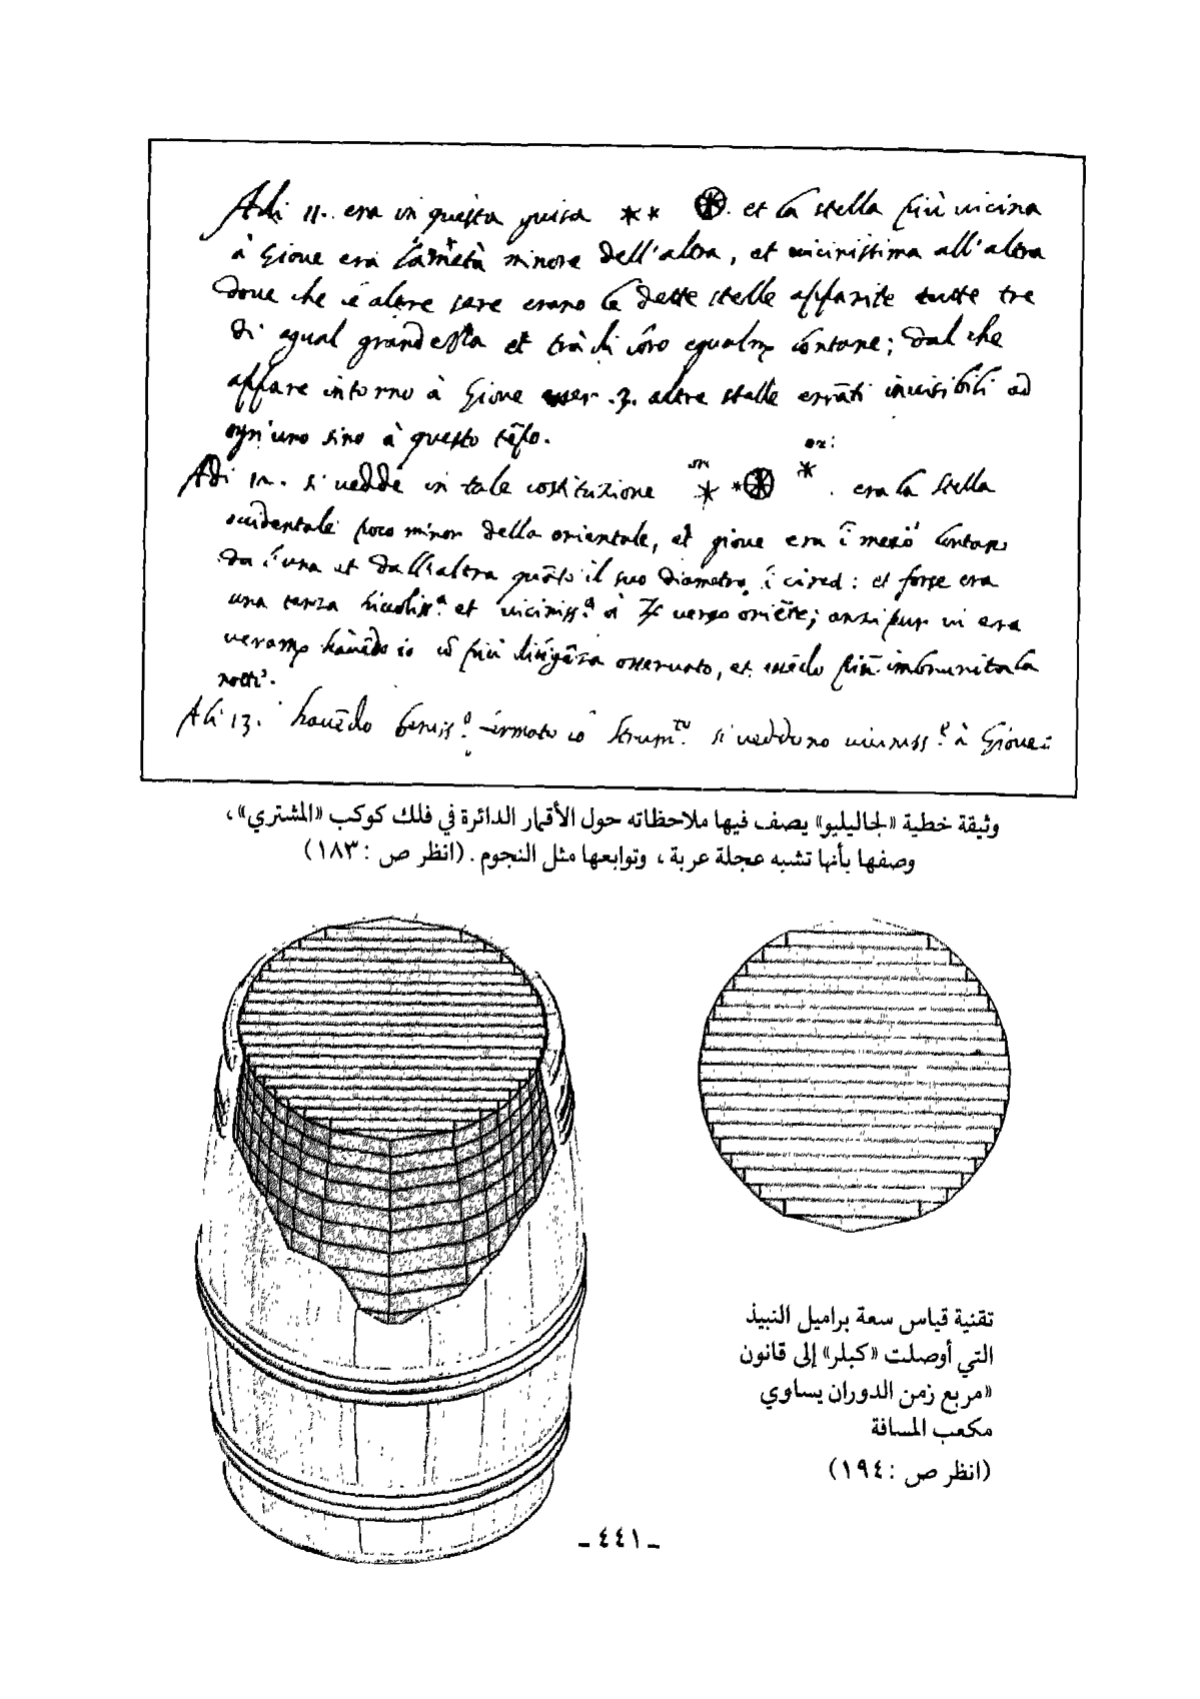 Adi 11. era in questa guisa et la stella più vicina
à Giove era la metà minore dell'altra, et vicinissima all'altra
dove che le altre sere erano le dette stelle apparite tutte tre
di egual grandezza et trà di loro egualm lontane; dal che
appare intorno à Giove esser .3. altre stelle errāti invisibili ad
ogn'uno sino à questo tēpo.
Adi 12. si vedde in tale costituzione era la stella
occidentale poco minor della orientale, et giove era ī mezo lontano
da l'una et dall'altra quāto il suo diametro ī circa: et forse era
una terza piccoliss.a et viciniss.a à ♃ verso oriēte; anzi pur vi era
veramē havēdo io cō più diligēza osservato, et essēdo più imbrunita la
notte.
Adi 13. havēdo beniss.o fermato lo strum.to si veddono viciniss.e à Giove
وثيقة خطية «لجاليليو» يصف فيها ملاحظاته حول الأقمار الدائرة في فلك كوكب «المشتري»،
وصفها بأنها تشبه عجلة عربة، وتوابعها مثل النجوم. (انظر ص: ١٨٣)
تقنية قياس سعة براميل النبيذ
التي أوصلت «كبلر» إلى قانون
«مربع زمن الدوران يساوي
مكعب المسافة
(انظر ص: ١٩٤)
ـ ٤٤١ ـ